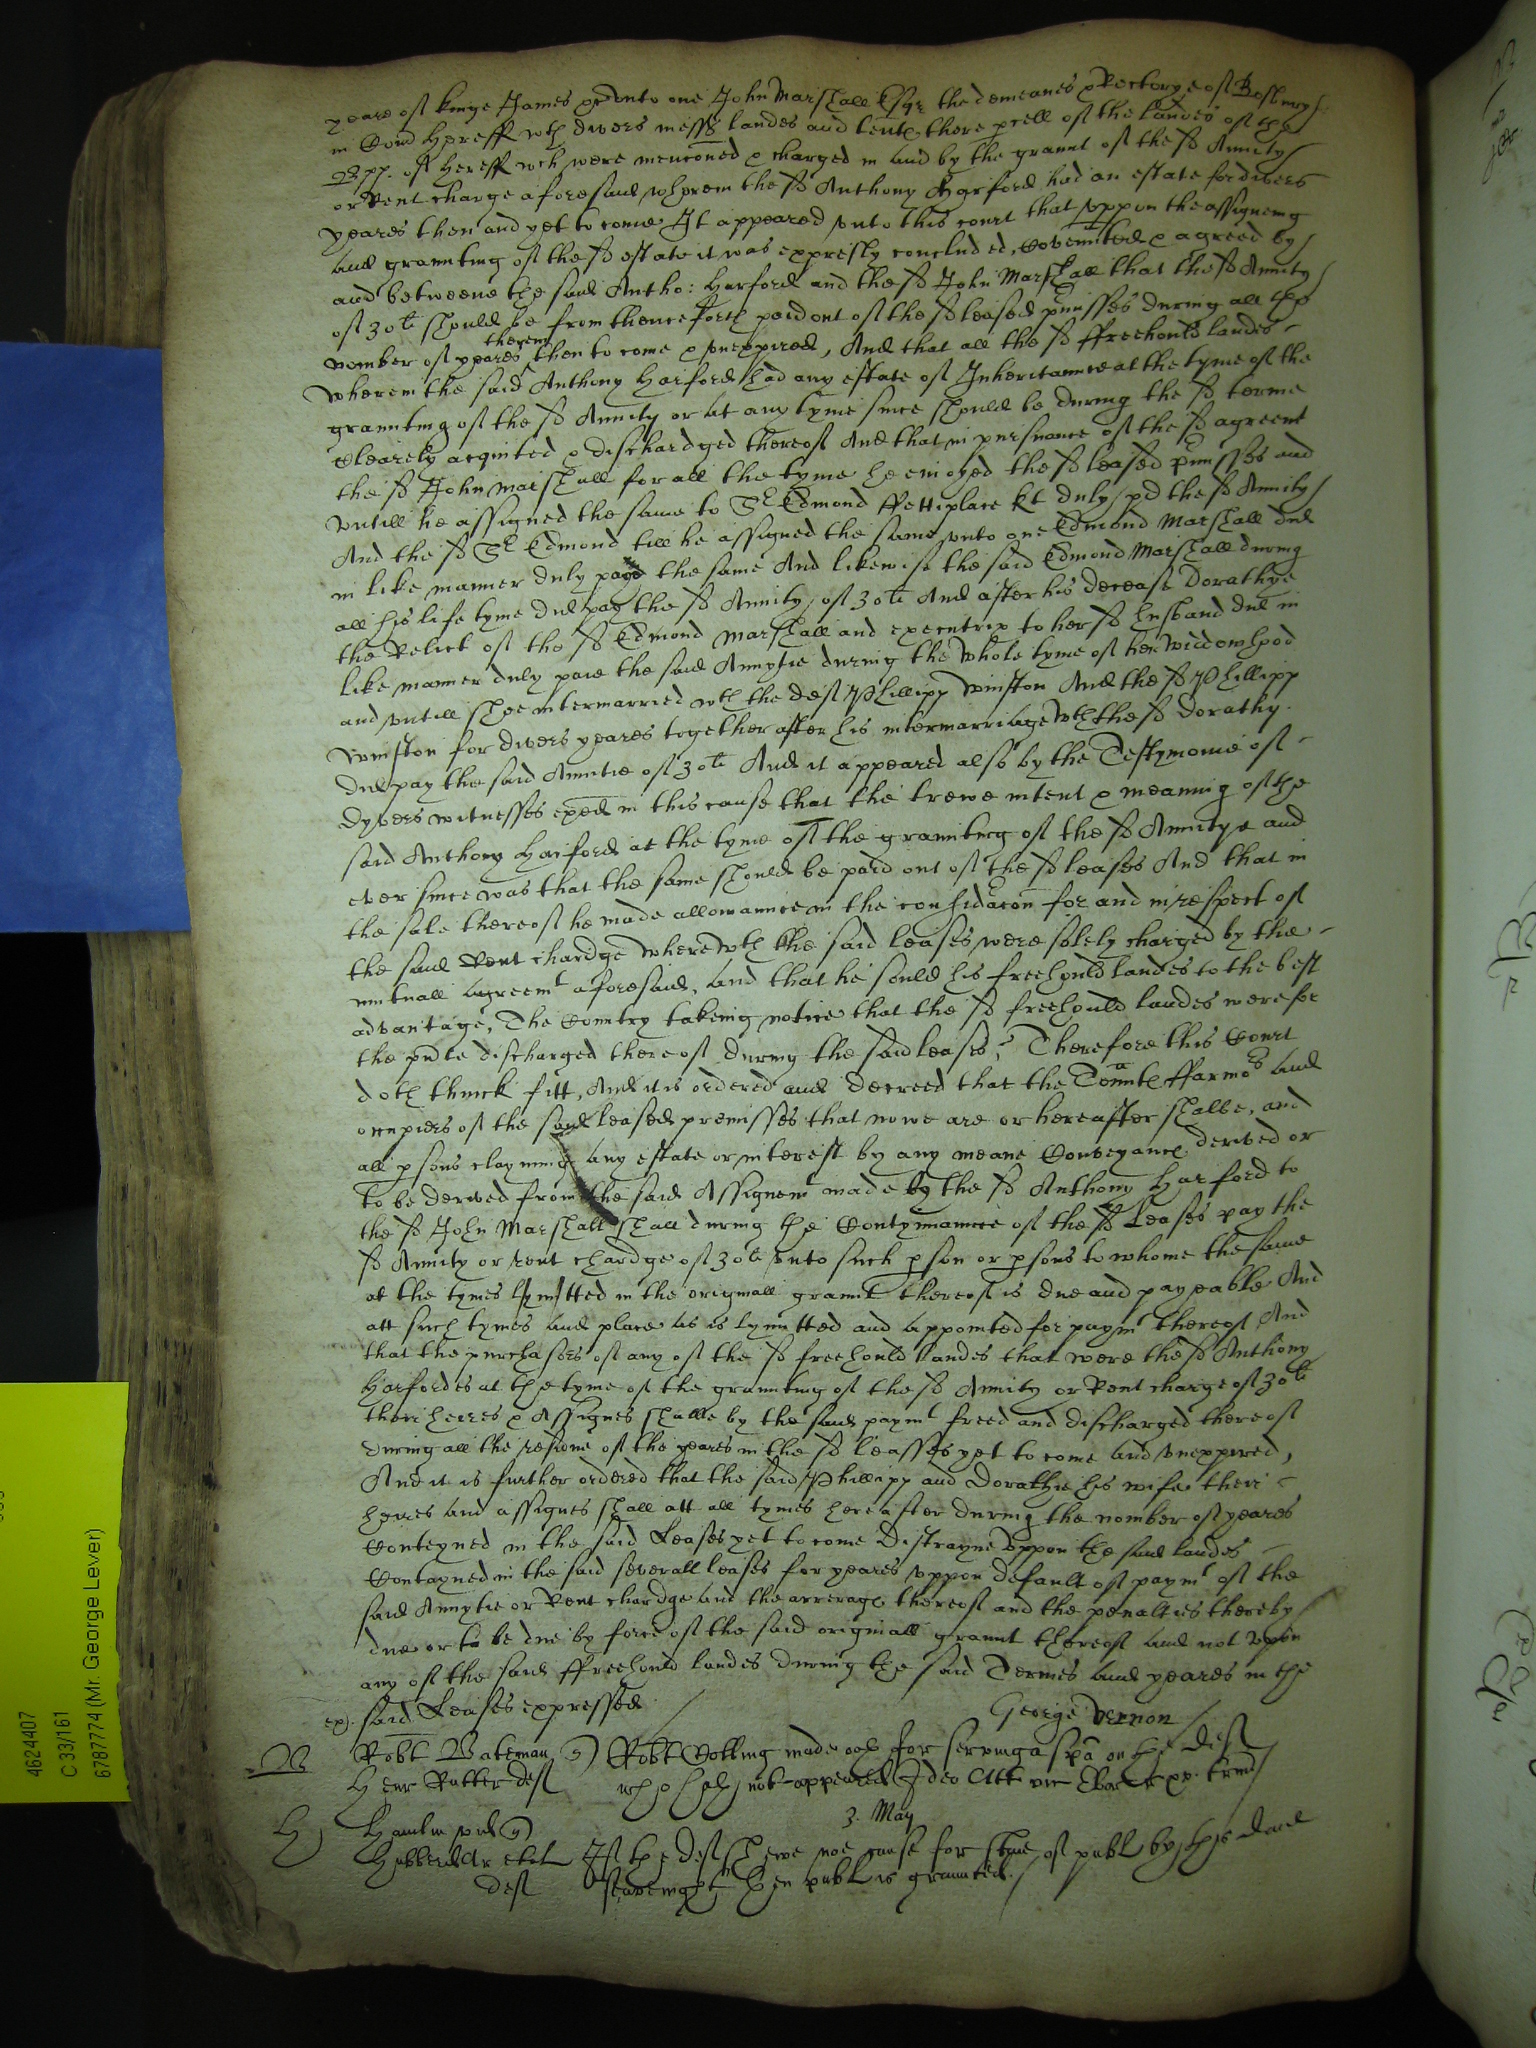 yeare of kinge James &c vnto one John Marshall Esqr the demeanes & Rectorye of Bosbury
in Com Hereff wth divers mess landes and tentes there pcell of the landes of the
Bpp. of Hereff wch were menconed & charged in and by the graunt of the sd Annity
or Rent charge aforesaid wherein the sd Anthony Harford had an estate for divers
yeares then and yet to come It appeared vnto this court that vppon the assigneing
and graunting of the sd estate it was expresly concluded, Covennted & agreed by
and betweene the said Antho: Harford and the sd John Marshall that the sd Annity
of 30li should be from thenceforth paid out of the sd leased pmisses during all the
nomber of yeares therein then to come & vnexpired, And that all the sd ffreehould landes
wherein the said Anthony Harford had any estate of Inheritannce at the tyme of the
graunting of the sd Annity or at any tyme since should be during the sd terme
Clearely acquited & dischardged thereof And that in pursuance of the sd agreemt
the sd John Marshall for all the tyme he enioyed the sd leased pmisses and
vntill he assigned the same to Sr Edmond ffettiplace kt duly pd the sd Annity
And the sd Sr Edmond till he assigned the same vnto one Edmond Marshall did
in like manner duly paye the same And likewise the said Edmond Marshall during
all his life tyme did pay the sd Annity of 30li And after his decease Dorathye
the Relict of the sd Edmond Marshall and executrix to her sd husband did in
like manner duly paie the said Annytie during the whole tyme of her widdowhood
and vntill shee intermarried wth the deft Phillipp Winston And the sd Phillipp
Winston for divers yeares together after his intermarriage wth the sd Dorathy
did pay the said Annitie of 30li And it appeared also by the Testymonie of
dyvers witnesses exed in this cause that the trewe intent & meaning of the
said Anthony Harford at the tyme of the graunting of the sd Annitye and
ever since was that the same should be paid out of the sd leases And that in
the sale thereof he made allowannce in the considacon for and in respect of
the said Rent chardge wherewth the said leases were solely charged by the
mutuall agreemt aforesaid, and that he sould his freehould landes to the best
advantage, The Countrey takeing notice that the sd freehould landes were for
the pnte discharged thereof during the said leases, Therefore this Court
doth thinck fitt, And it is ordered and decreed that the Tennts ffarmors and
occupiers of the said leased premisses that nowe are or hereafter shalbe, and
all psons clayming any estate or interest by any meane Conveyance derived or
to be derived from the said Assignemt made by the sd Anthony Harford to
the sd John Marshall shall during the Contynuannce of the sd Leases pay the
sd Annity or rent chardge of 30li vnto such pson or psons to whome the same
at the tymes lymitted in the originall graunt thereof is due and payeable And
att such tymes and place as is lymitted and appointed for paymt thereof And
that the purchasors of any of the sd freehould landes that were the sd Anthony
Harfordes at the tyme of the graunting of the sd Annity or Rent charge of 30li
their heires & Assignes shalbe by the said paymt freed and discharged thereof
during all the residue of the yeares in the sd leasses yet to come and vnexpired,
And it is further ordered that the said Phillipp and Dorathie his wife their
heires and assignes shall att all tymes hereafter during the nomber of yeares
Conteyned in the said Leases yet to come distrayne vppon the said landes
Contayned in the said severall leases for yeares vppon default of paymt of the
said Annytie or Rent chardge and the arrerages thereof and the penalties thereby
due or to be due by force of the said originall graunt thereof and not vpon
any of the said ffreehould landes during the said Termes and yeares in the
said Leases expressed
George Vernon
Robt Bateman Robt Colling made oath for serving a spa on the deft
Henr Rutter deft who hath not appeared Ideo Att vic
3. May
Hamlin If the deft shewe noe cause for staie of publ by this daie
deft sevenight then publ is graunted.
4624407
C 33/161
6787774 (Mr. George Lever)